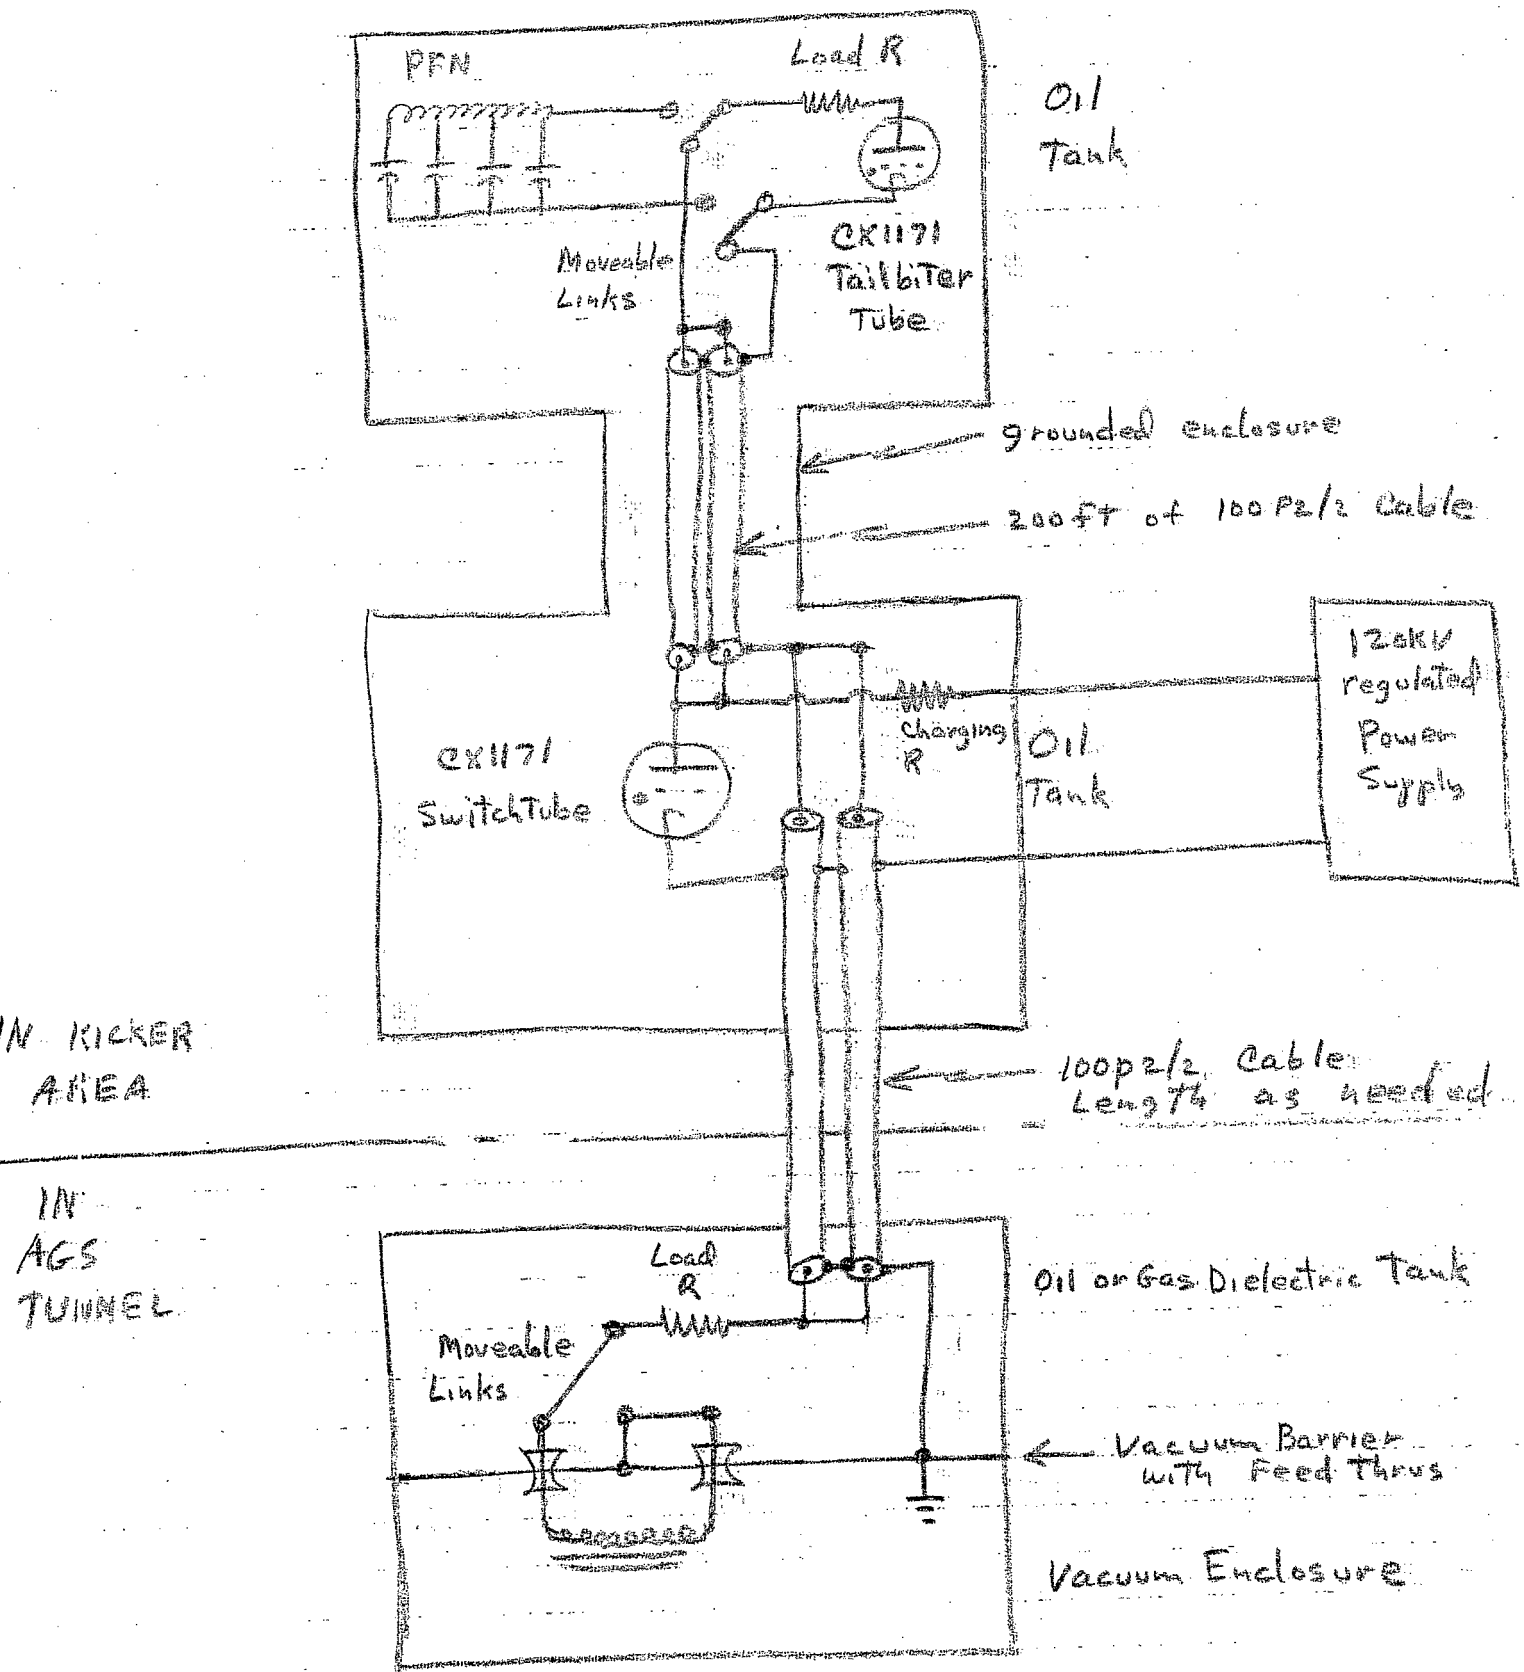 PFN
Load R
Oil
Tank
CX1171
Tailbiter
Tube
Moveable
Links
grounded enclosure
200 ft of 100P2/2 Cable
120kV
regulated
Power
Supply
Charging
R
Oil
Tank
CX1171
Switch Tube
IN KICKER
AREA
100P2/2 Cable
Length as needed
IN
AGS
TUNNEL
Load
R
Oil or Gas Dielectric Tank
Moveable
Links
Vacuum Barrier
with Feed Thrus
Vacuum Enclosure